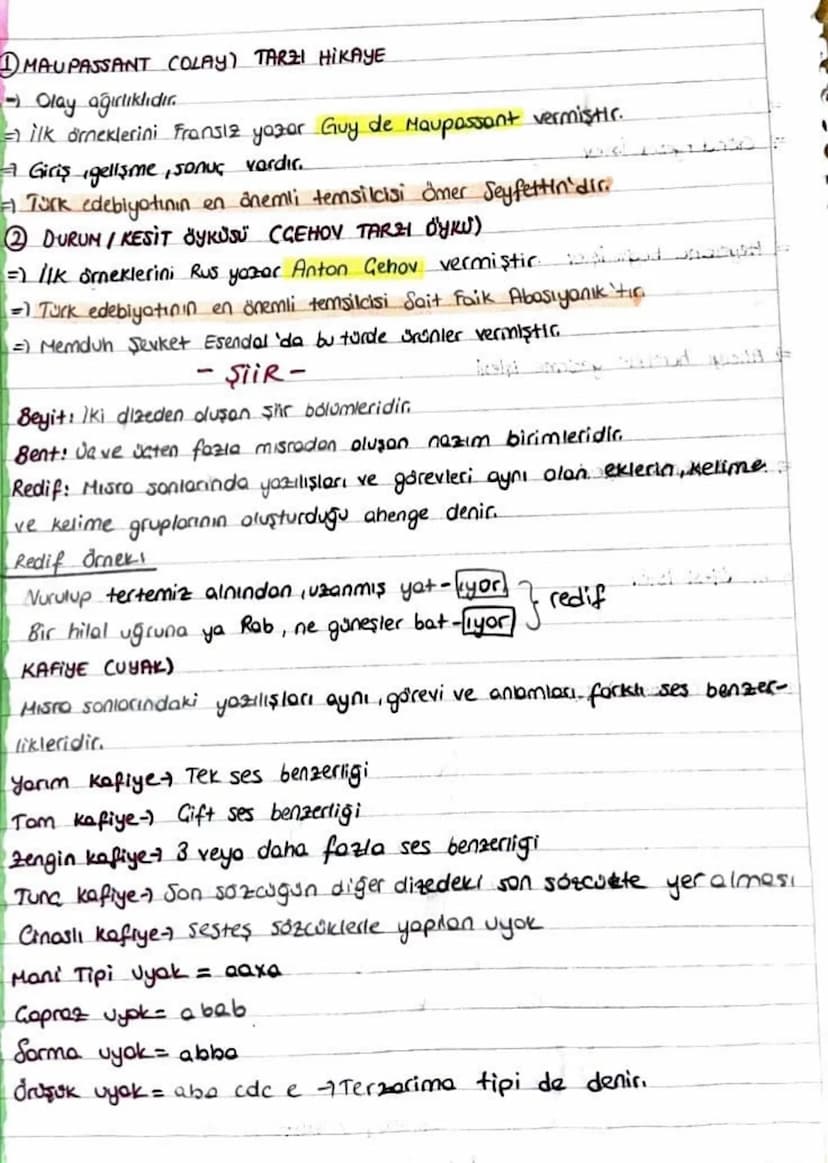 ① MAUPASSANT (OLAY) TARZI HİKAYE
⇒ Olay ağırlıklıdır.
⇒ İlk örneklerini Fransız yazar Guy de Maupassant vermiştir.
⇒ Giriş, gelişme, sonuç vardır.
⇒ Türk edebiyatının en önemli temsilcisi Ömer Seyfettin'dir.
② DURUM / KESİT ÖYKÜSÜ (ÇEHOV TARZI ÖYKÜ)
⇒ İlk örneklerini Rus yazar Anton Çehov vermiştir.
⇒ Türk edebiyatının en önemli temsilcisi Sait Faik Abasıyanık'tır.
⇒ Memduh Şevket Esendal'da bu türde ürünler vermiştir.
- ŞİİR -
Beyit: İki dizeden oluşan şiir bölümleridir.
Bent: Üç ve üçten fazla mısradan oluşan nazım birimleridir.
Redif: Mısra sonlarında yazılışları ve görevleri aynı olan eklerin, kelime
ve kelime gruplarının oluşturduğu ahenge denir.
Redif Örneği
Vurulup tertemiz alnından, uzanmış yat-ıyor } redif
Bir hilal uğruna ya Rab, ne güneşler bat-ıyor
KAFİYE (UYAK)
Mısra sonlarındaki yazılışları aynı, görevi ve anlamları farklı ses benzer-
likleridir.
Yarım kafiye → Tek ses benzerliği
Tam kafiye → Çift ses benzerliği
Zengin kafiye → 3 veya daha fazla ses benzerliği
Tunç kafiye → Son sözcüğün diğer dizedeki son sözcükte yer alması
Cinaslı kafiye → Sesteş sözcüklerle yapılan uyak
Mani Tipi Uyak = aaxa
Çapraz uyak = abab
Sarma uyak = abba
Örüşük uyak = aba cdc e → Terzarima tipi de denir.